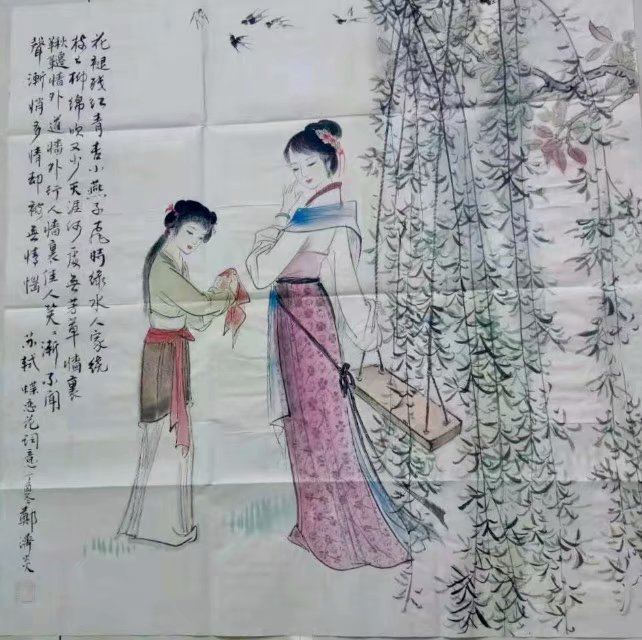 花褪残红青杏小燕子飛時绿水人家绕
枝上柳绵吹又少天涯何處无芳草墙裏
鞦韆墙外道墙外行人墙裏佳人笑渐不闻
聲渐悄多情却被无情惱 苏轼 蝶恋花词意 冬 鄭